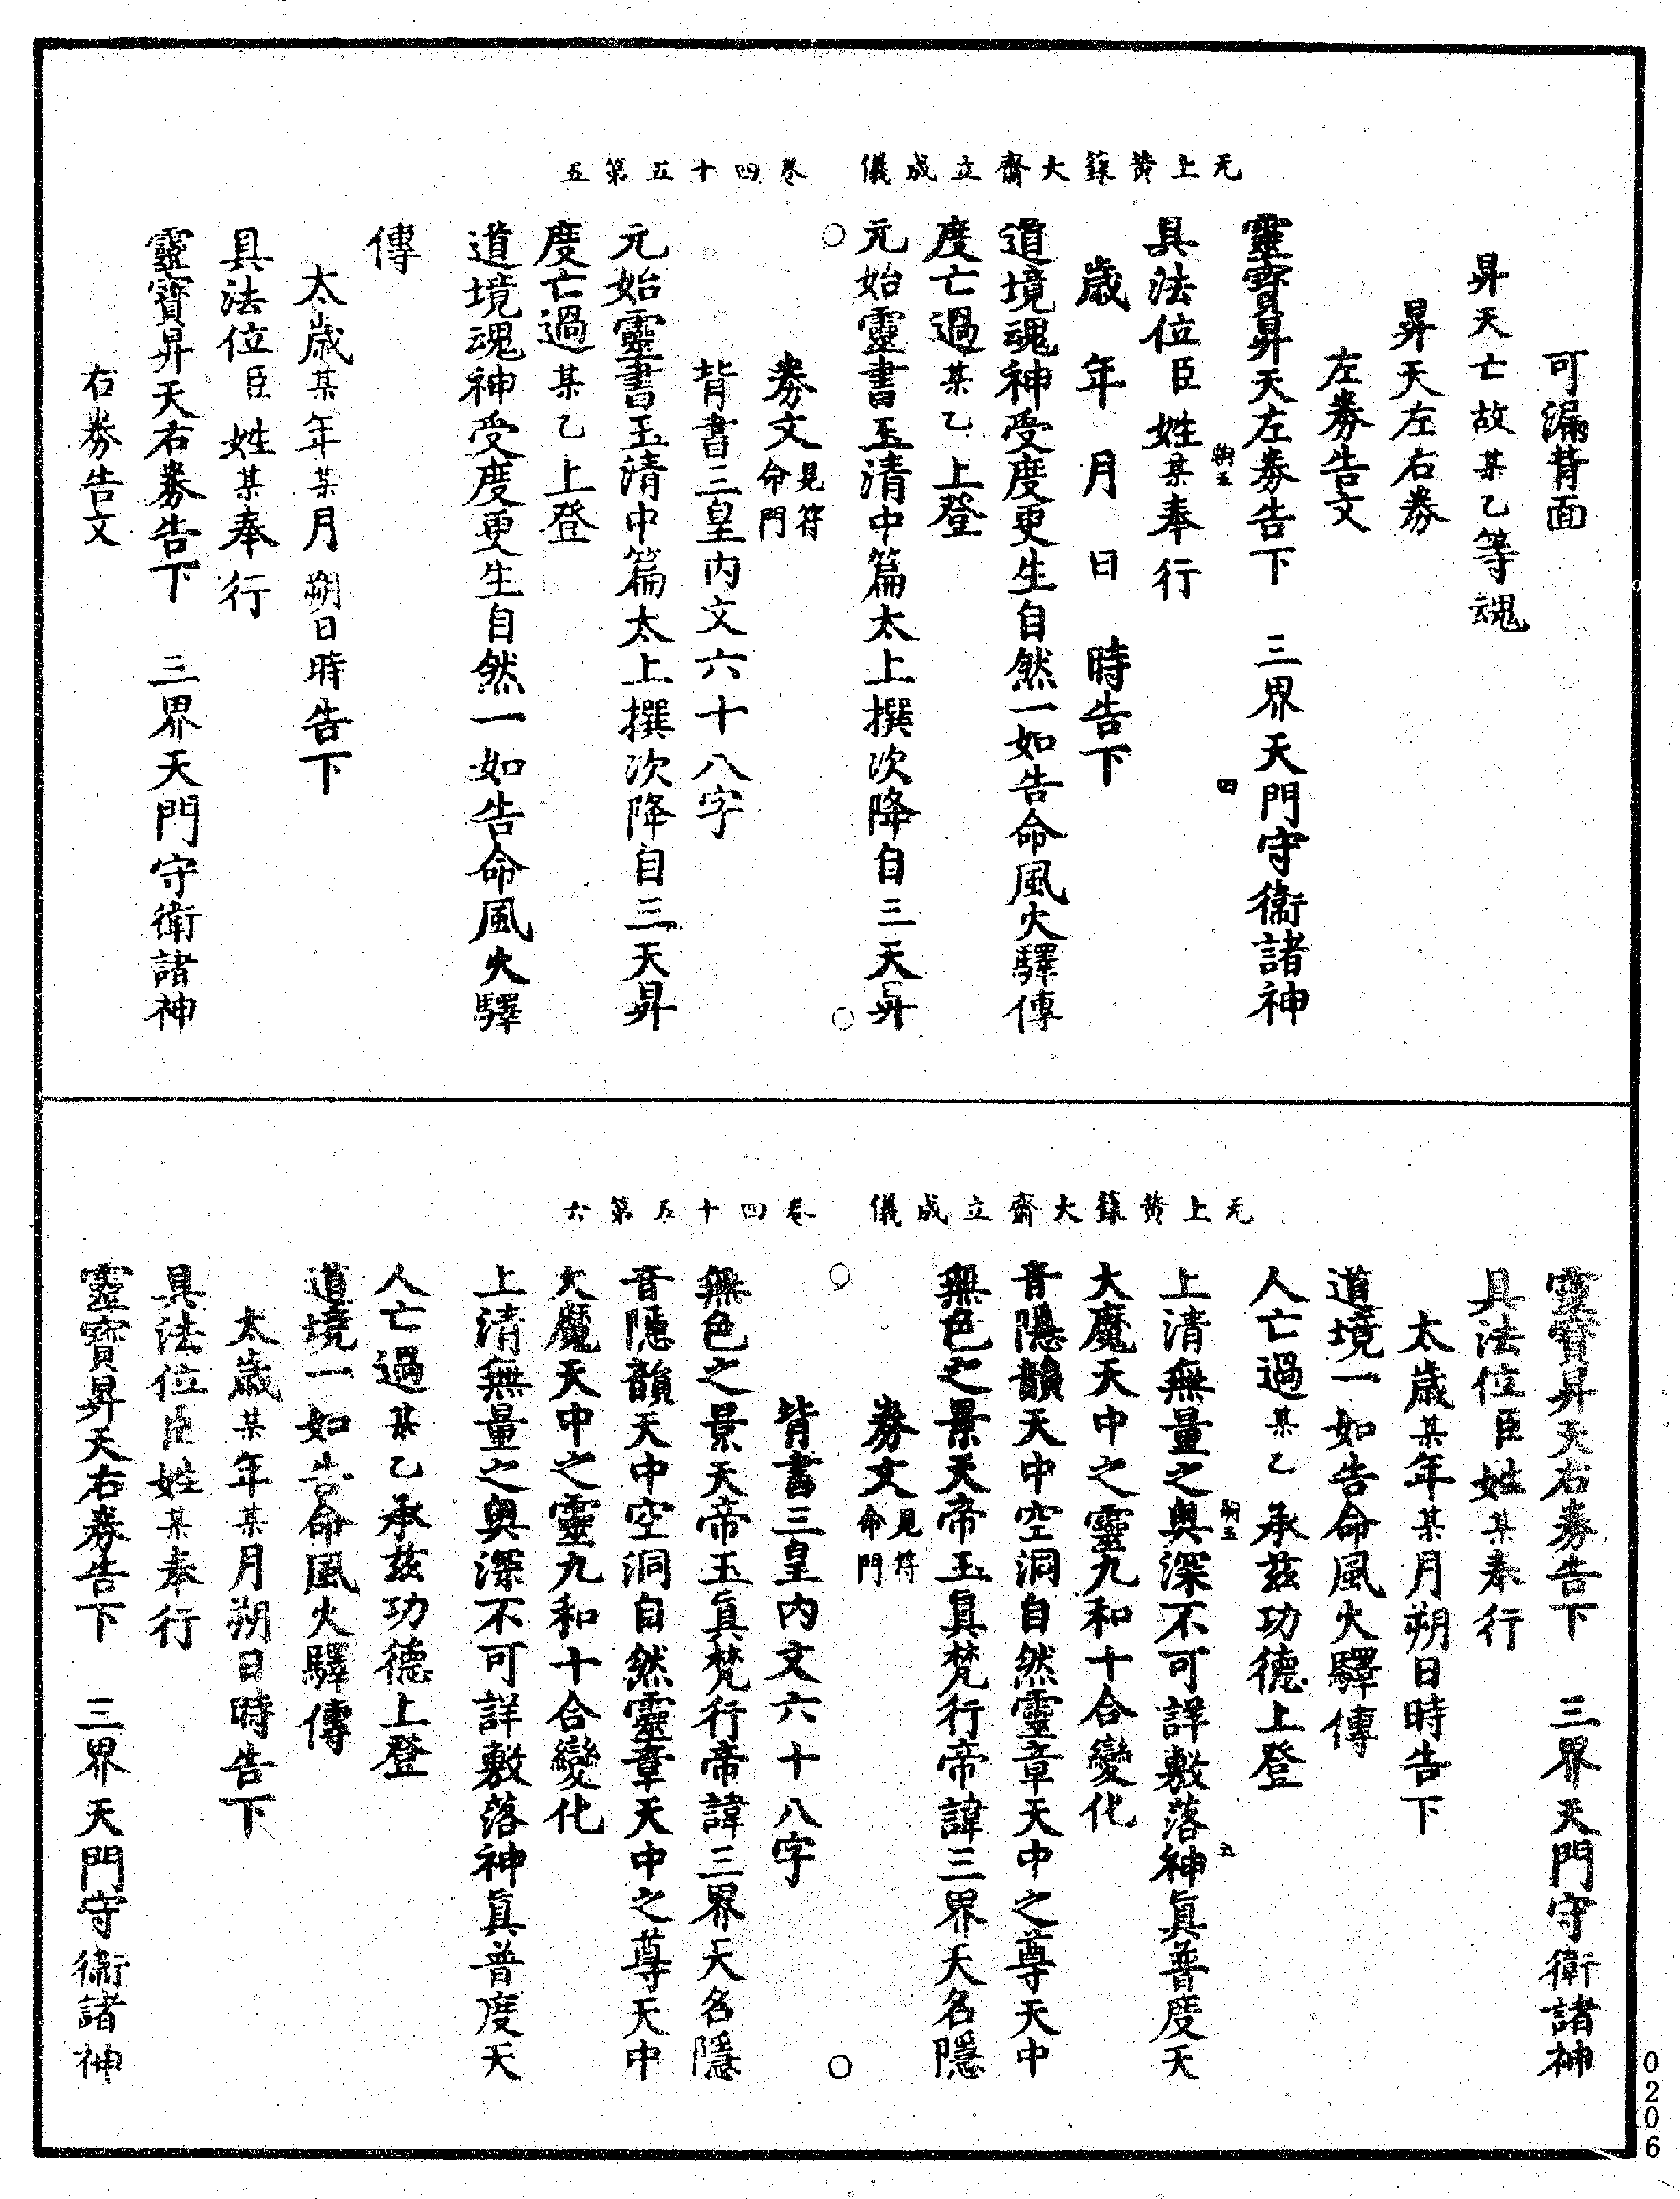 无上黃籙大齋立成儀　卷四十五第五
可漏背面
昇天亡故某乙等魂
昇天左右券
左券告文
靈寶昇天左券告下　三界天門守衞諸神
具法位臣姓某奉行
歲　年　月　日　時告下
道境魂神受度更生自然一如告命風火驛傳
度亡過某乙上登
元始靈書玉清中篇太上撰次降自三天昇
券文見符命門
背書三皇內文六十八字
元始靈書玉清中篇太上撰次降自三天昇
度亡過某乙上登
道境魂神受度更生自然一如告命風火驛
傳
太歲某年某月朔日時告下
具法位臣姓某奉行
靈寶昇天右券告下　三界天門守衛諸神
右券告文
无上黃籙大齋立成儀　卷四十五第六
靈寶昇天右券告下　三界天門守衛諸神
具法位臣姓某奉行
太歲某年某月朔日時告下
道境一如告命風火驛傳
人亡過某乙承茲功德上登
上清無量之奧深不可詳敷落神眞普度天
大魔天中之靈九和十合變化
音隱韻天中空洞自然靈章天中之尊天中
無色之景天帝玉眞梵行帝諱三界天名隱
券文見符命門
背書三皇內文六十八字
無色之景天帝玉眞梵行帝諱三界天名隱
音隱韻天中空洞自然靈章天中之尊天中
大魔天中之靈九和十合變化
上清無量之奧深不可詳敷落神眞普度天
人亡過某乙承茲功德上登
道境一如告命風火驛傳
太歲某年某月朔日時告下
具法位臣姓某奉行
靈寶昇天右券告下　三界天門守衞諸神
0206